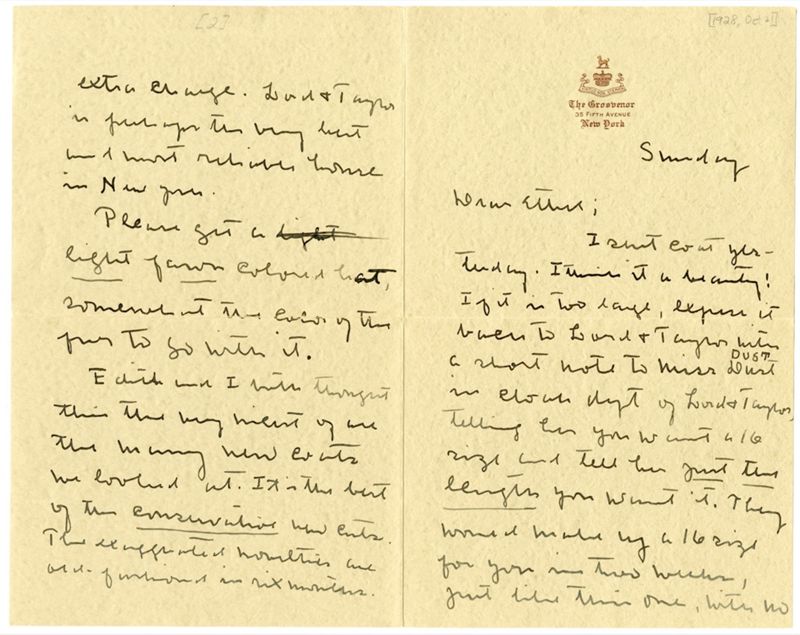 [1928, Oct 2]
The Grosvenor
35 Fifth Avenue
New York
Sunday
Dear Ethel;
I sent coat yes-
terday. I think it a beauty!
If it is too large, express it
back to Lord & Taylor with
a short note to Miss Dust
DUST
in cloak dept of Lord & Taylor,
telling her you want a 16
size and tell her just the
length you want it. They
would make up a 16 size
for you in two weeks,
just like this one, with no
[2]
extra charge. Lord & Taylor
is perhaps the very best
and most reliable house
in New York.
Please get a light
light fawn colored hat,
somewhat the color of the
fur to go with it.
Edith and I both thought
this the very nicest of all
the many new coats
we looked at. It is the best
of the conservative new cuts.
The exaggerated novelties are
old-fashioned in six months.